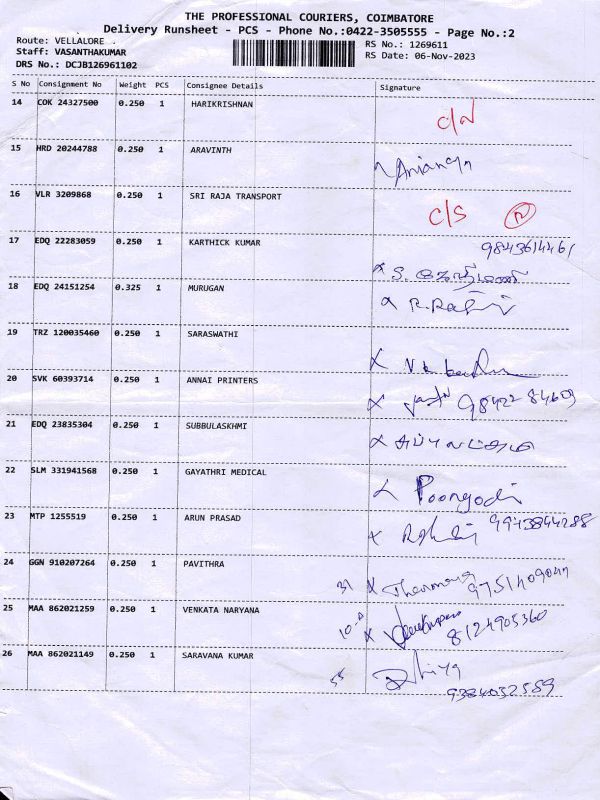 THE PROFESSIONAL COURIERS, COIMBATORE
Delivery Runsheet - PCS - Phone No.:0422-3505555 - Page No.:2
Route: VELLALORE
Staff: VASANTHAKUMAR
DRS No.: DCJB126961102
RS No.: 1269611
RS Date: 06-Nov-2023
S No Consignment No Weight PCS Consignee Details Signature
14 COK 24327500 0.250 1 HARIKRISHNAN
15 HRD 20244788 0.250 1 ARAVINTH
16 VLR 3209868 0.250 1 SRI RAJA TRANSPORT C/S
17 EDQ 22283059 0.250 1 KARTHICK KUMAR 9843614461
18 EDQ 24151254 0.325 1 MURUGAN
19 TRZ 120035460 0.250 1 SARASWATHI
20 SVK 60393714 0.250 1 ANNAI PRINTERS 98422 84609
21 EDQ 23835304 0.250 1 SUBBULASKHMI
22 SLM 331941568 0.250 1 GAYATHRI MEDICAL Poongodi
23 MTP 1255519 0.250 1 ARUN PRASAD 9943844288
24 GGN 910207264 0.250 1 PAVITHRA
25 MAA 862021259 0.250 1 VENKATA NARYANA 8124905360
26 MAA 862021149 0.250 1 SARAVANA KUMAR
9384032589